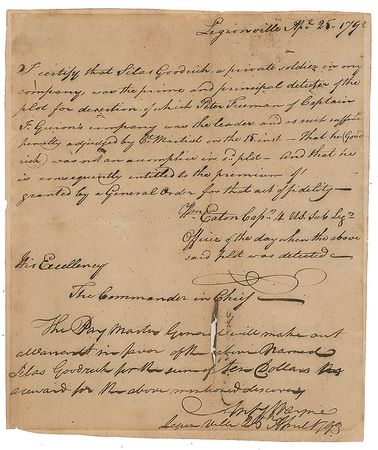 Legionville Apl. 25. 1793
I certify that Silas Goodrich a private soldier in my
company, was the prime and principal detector of the
plot for desertion of which Peter Freeman of Captain
Guion's company was the leader and as such suffd.
penalty adjudged by Ct. Martial on the 18 inst. — That he (Good
rich) was not an acomplice in sd. plot — And that he
is consequently entitled to the premium
granted by a General Order for that act of fidelity —
Wm. Eaton Capn. 4 U.S. Sub Legn.
Officer of the day when the above
said plot was detected —
His Excellency
The Commander in Chief
The Pay Master General will make out
a Warrant in favor of the above Named
Silas Goodrich for the sum of ten Dollars as
a reward for the above mentioned discovery
Anty. Wayne
Legion Ville 25 April 1793